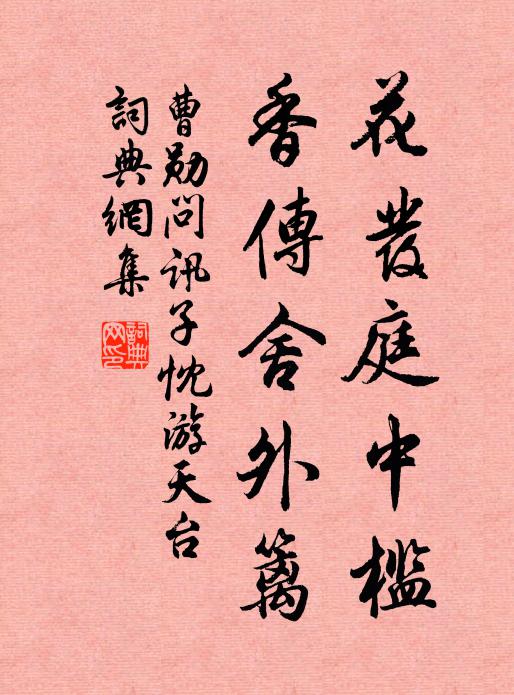 花發庭中檻
香傳舍外籬
曹勛問訊子忱游天台
詞典網集
詞典網印